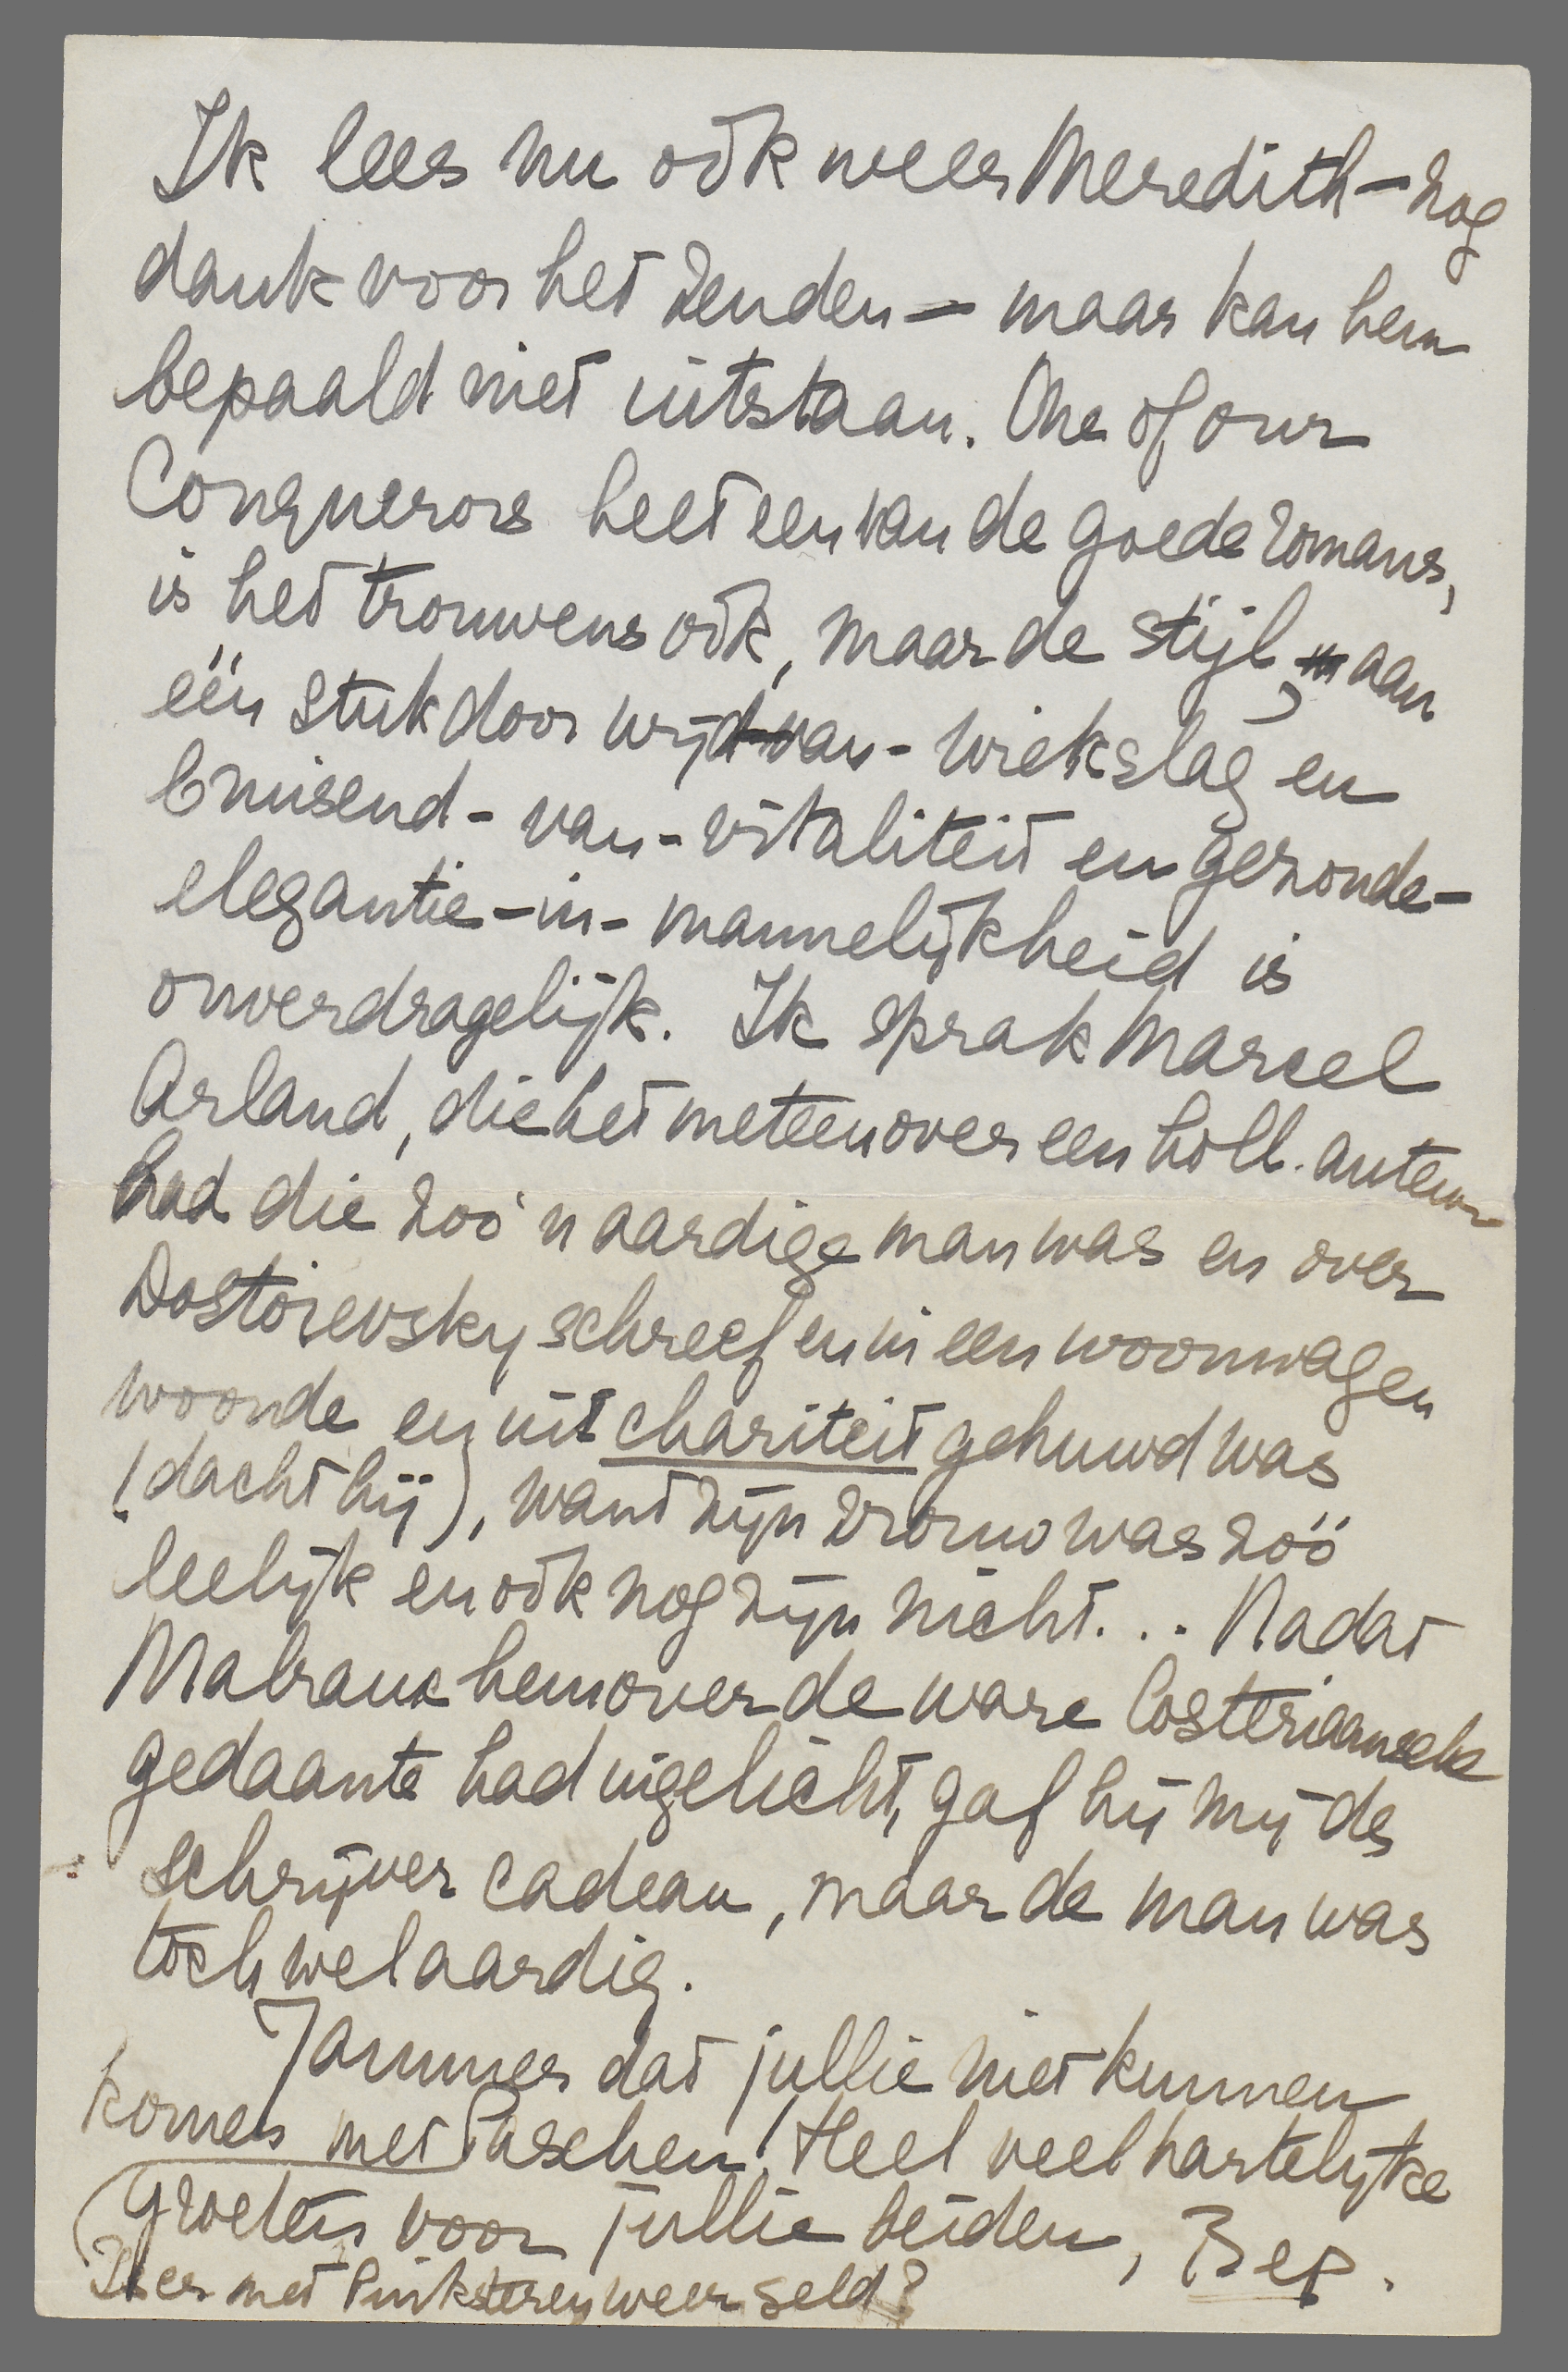 Ik lees nu ook weer Meredith – nog
dank voor het zenden – maar kan hem
bepaald niet uitstaan. One of our
Conquerors heet een van de goede romans,
is het trouwens ook, maar de stijl, aan
één stuk door wijd-van-wiekslag en
bruisend-van-vitaliteit en gezonde-
elegantie-in-mannelijkheid is
onverdragelijk. Ik sprak Marcel
Arland, die het meteen over een holl. auteur
had die zoo'n aardige man was en over
Dostoievsky schreef en in een woonwagen
woonde en uit chariteit gehuwd was
(dacht hij), want zijn vrouw was zóó
leelijk en ook nog zijn nicht... Nadat
Malraux hem over de ware Costeriaansche
gedaante had ingelicht, gaf hij mij de
schrijver cadeau, maar de man was
toch wel aardig.
Jammer dat jullie niet kunnen
komen met Paschen! Heel veel hartelijke
groeten voor jullie beiden, Bep.
Is er met Pinksteren weer geld?